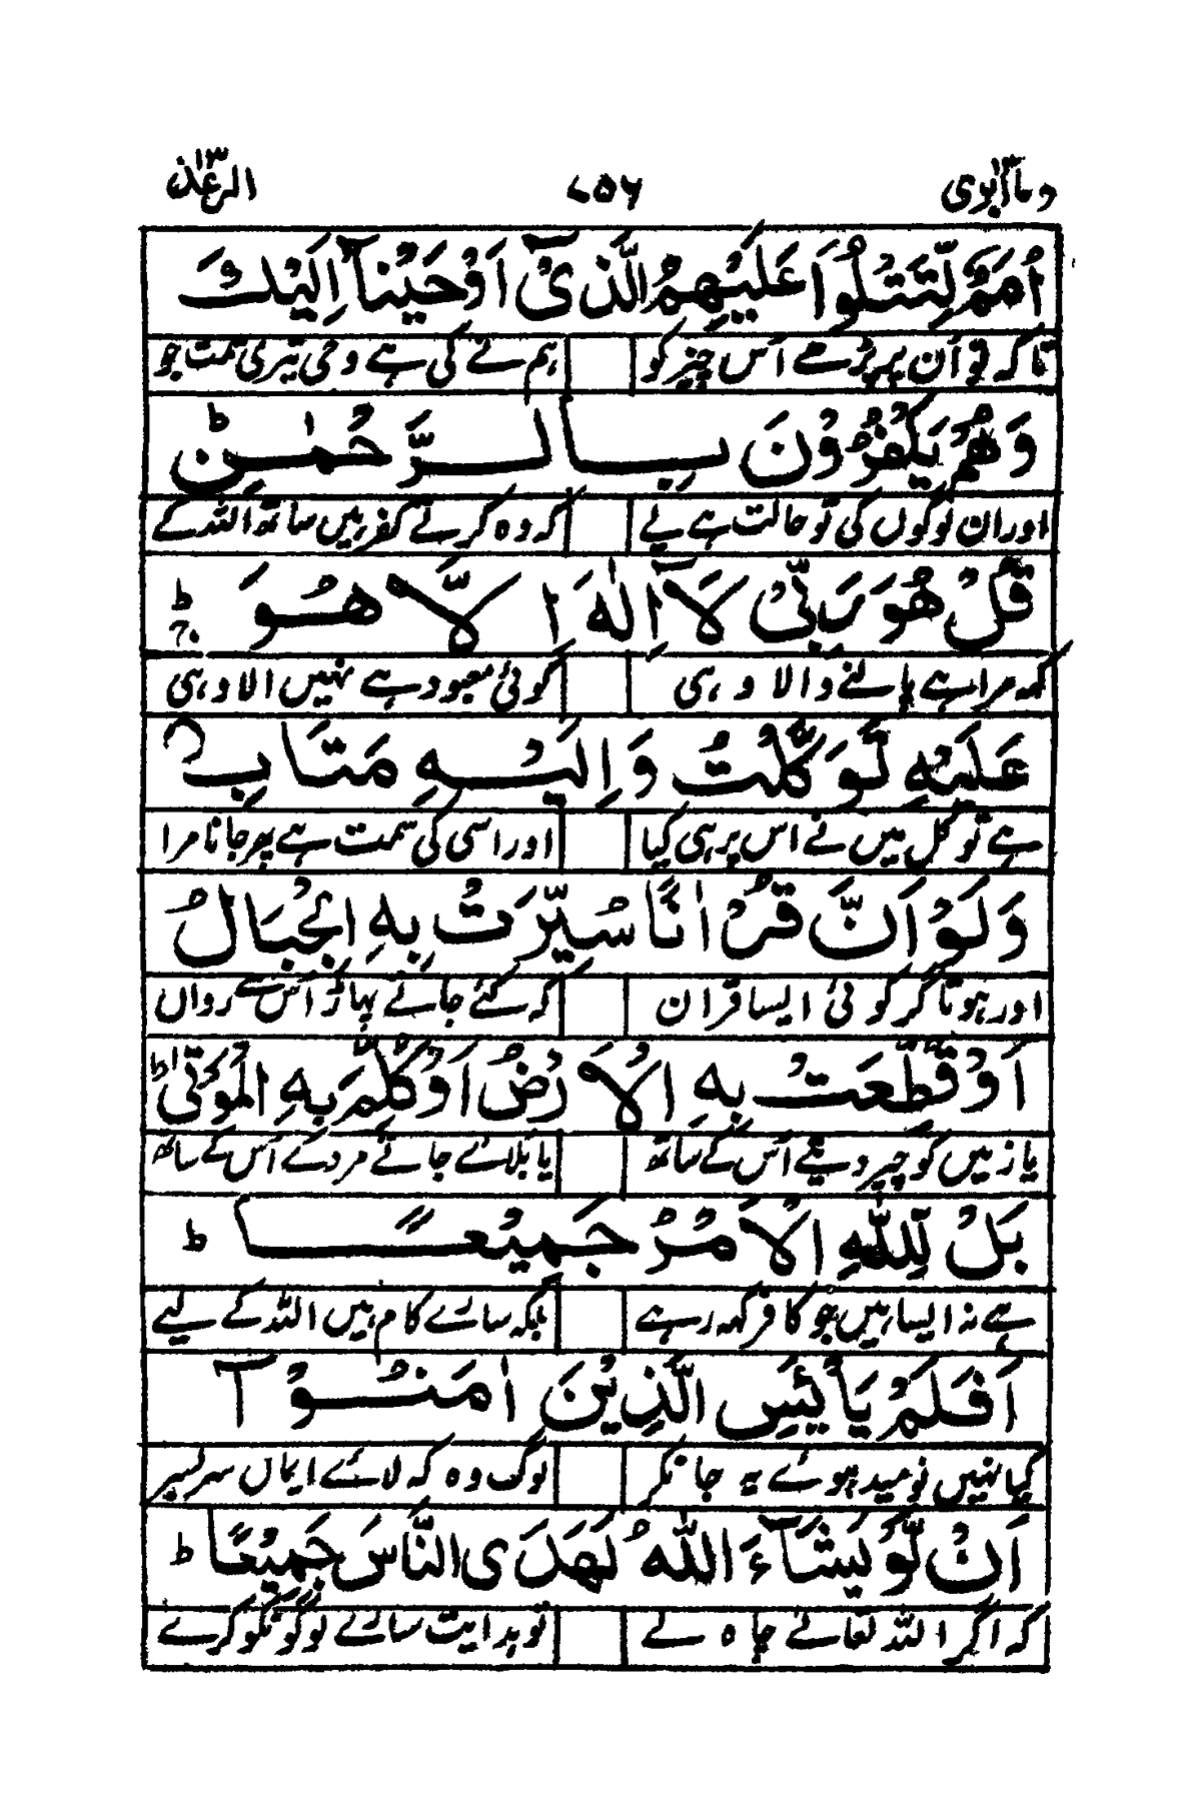 وماابری ۱۳ ۷۵۶ الرعد ۱۳
اُمَمٌ لِّتَتْلُوَا۟ عَلَيْهِمُ الَّذِىْٓ اَوْحَيْنَآ اِلَيْكَ
تا کہ تو ان پر پڑھے اس چیز کو ہم نے کی ہے وحی تیری سمت جو
وَهُمْ يَكْفُرُوْنَ بِالرَّحْمٰنِ ؕ
اور ان لوگوں کی تو حالت ہے یے کہ وہ کرتے کفر ہیں ساتھ اللہ کے
قُلْ هُوَ رَبِّىْ لَآ اِلٰهَ اِلَّا هُوَ ۚ ؕ
کہہ مرا ہے پالنے والا وہی کوئی معبود ہے نہیں الا وہی
عَلَيْهِ تَوَكَّلْتُ وَاِلَيْهِ مَتَابِ
ہے توکل میں نے اس پر ہی کیا اور اسی کی سمت ہے پھر جانا مرا
وَلَوْ اَنَّ قُرْاٰنًا سُيِّرَتْ بِهِ الْجِبَالُ
اور ہوتا گر کوئی ایسا قران کہ کئے جاتے پہاڑ اس سے رواں
اَوْ قُطِّعَتْ بِهِ الْاَرْضُ اَوْ كُلِّمَ بِهِ الْمَوْتٰى ؕ
یا زمیں کو چیر دیتے اس کے ساتھ یا بلائے جاتے مردے اس کے ساتھ
بَلْ لِّلّٰهِ الْاَمْرُ جَمِيْعًا ؕ
ہے نہ ایسا ہیں جو کافر کہہ رہے بلکہ سارے کام ہیں اللہ کے لیے
اَفَلَمْ يَا۟يْئَسِ الَّذِيْنَ اٰمَنُوْٓا
کیا نہیں نومید ہوئے یہ جانکر لوگ وہ کہ لائے ایماں سربسر
اَنْ لَّوْ يَشَآءُ اللّٰهُ لَهَدَى النَّاسَ جَمِيْعًا ؕ
کہ اگر اللہ تعالے چاہ لے تو ہدایت سارے لوگونکو کرے